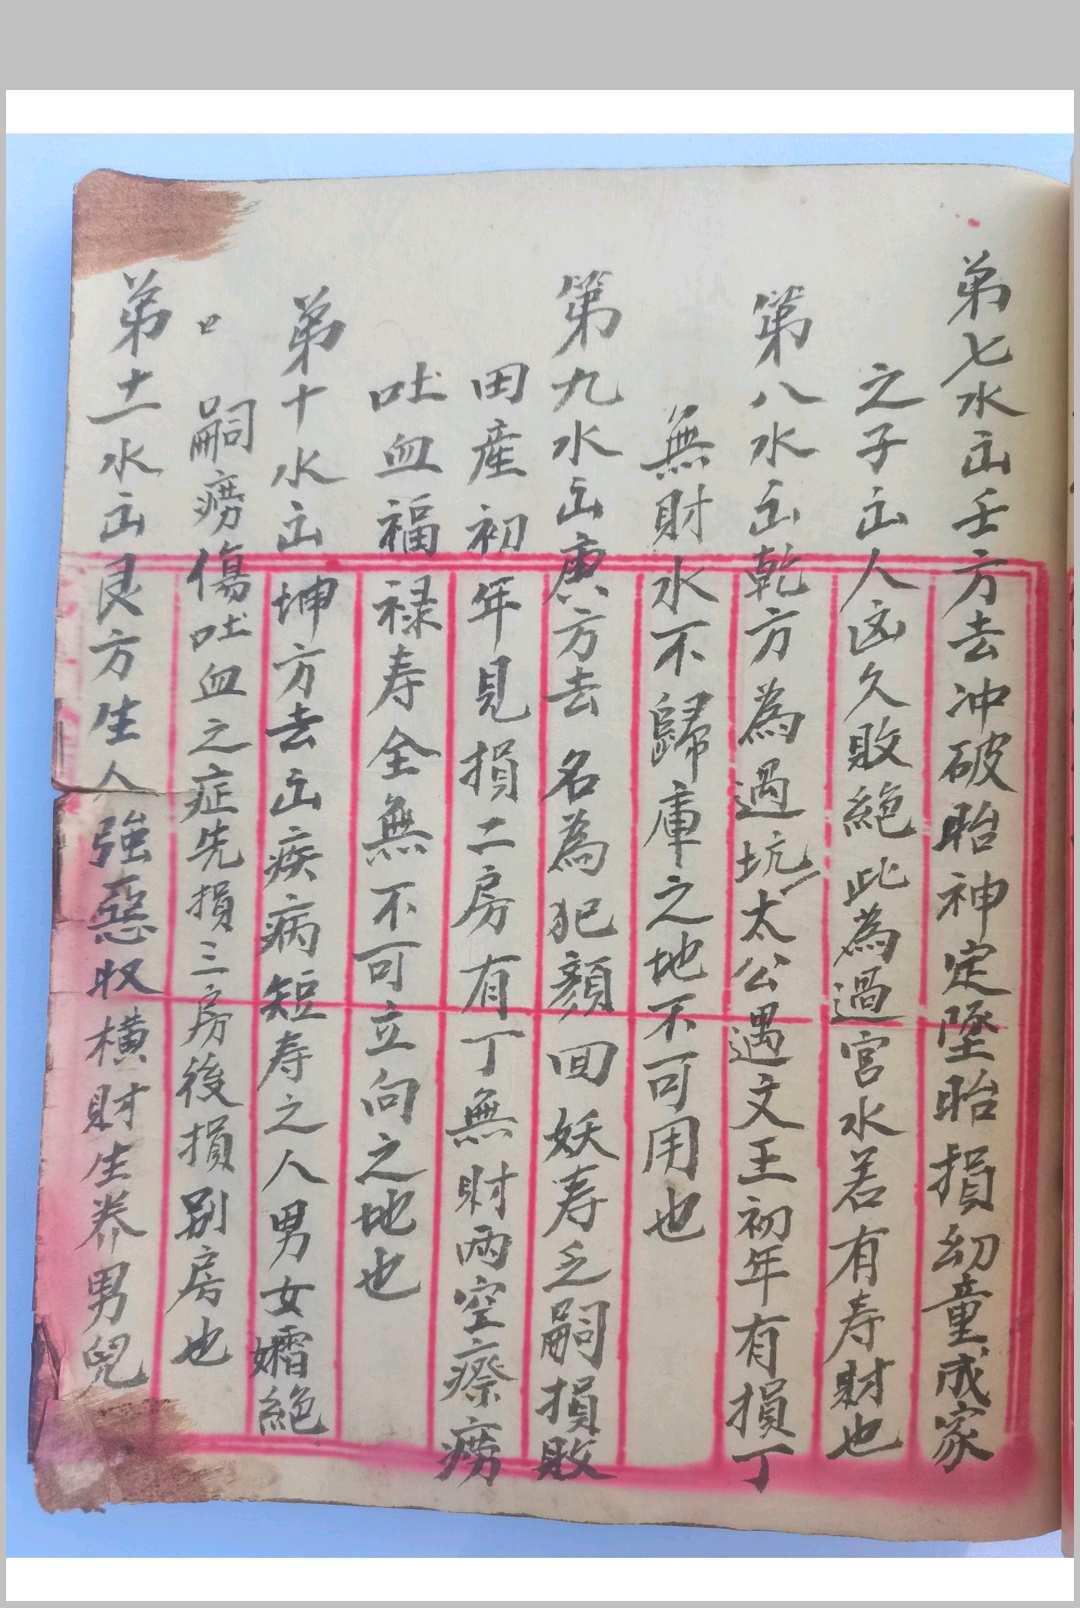 弟七水出壬方去冲破胎神定墜胎損幼童成家
之子出人凶久敗絕此為過宮水若有寿財也
第八水出乾方為過坑太公遇文王初年有損丁
無財水不歸庫之地不可用也
第九水出庚方去名為犯顏回妖寿乏嗣損敗
田産初年見損二房有丁無財兩空瘵痨
吐血福禄寿全無不可立向之地也
弟十水出坤方去出疾病短寿之人男女孀絕
口嗣痨傷吐血之症先損三房後損别房也
弟十一水出艮方生人強惡収横財生养男兒